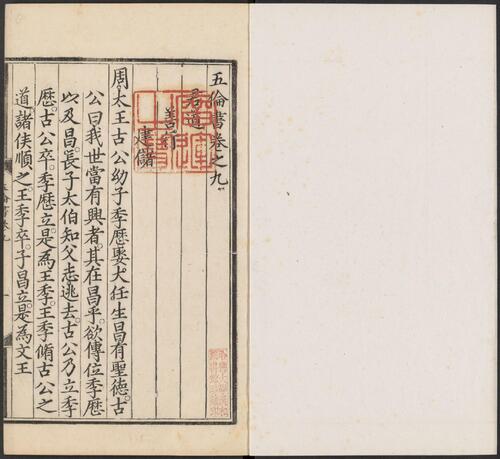 五倫書卷之九
君道
善行
建儲
周太王古公幼子季歷娶大任生昌有聖德古
公曰我世當有興者其在昌乎欲傳位季歷
以及昌長子太伯知父志逃去古公乃立季
歷古公卒季歷立是為王季王季脩古公之
道諸侯順之王季卒子昌立是為文王